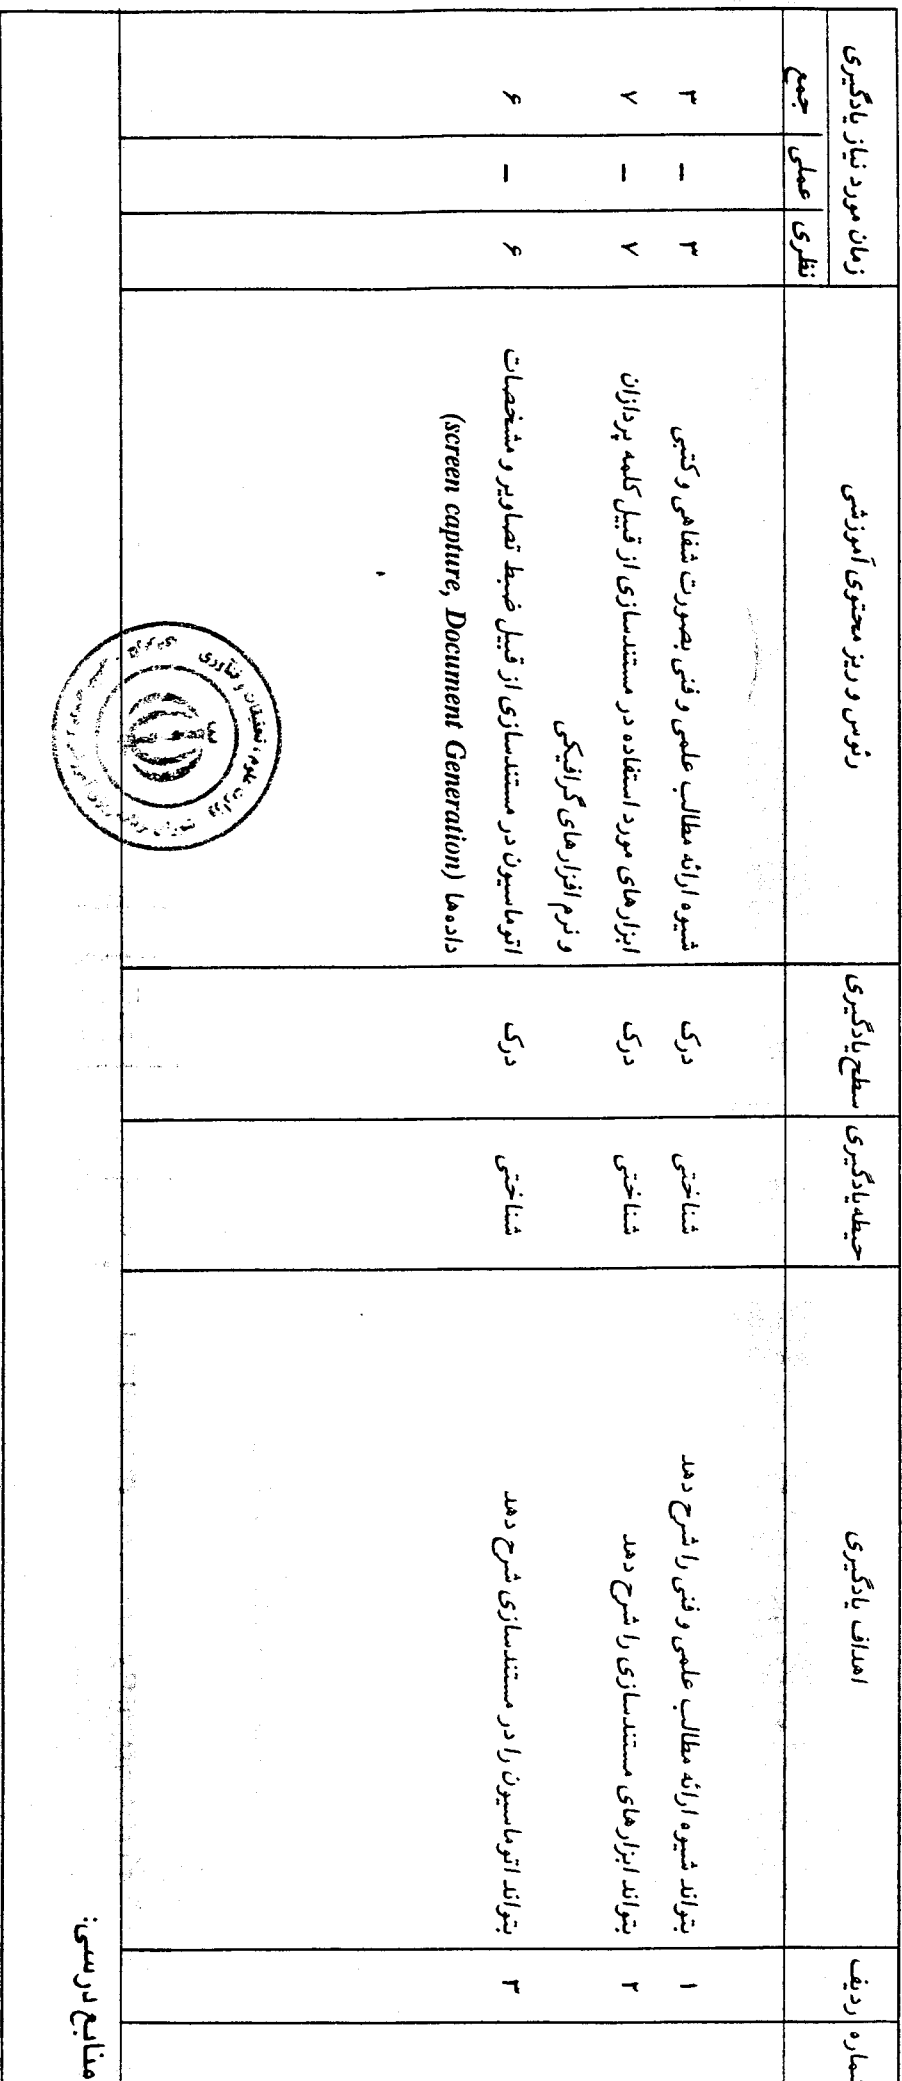 شماره
ردیف
اهداف یادگیری
حیطه یادگیری
سطح یادگیری
رئوس و ریز محتوی آموزشی
زمان مورد نیاز یادگیری
نظری
عملی
جمع
۱
بتواند شیوه ارائه مطالب علمی و فنی را شرح دهد
شناختی
درک
شیوه ارائه مطالب علمی و فنی بصورت شفاهی و کتبی
۳
–
۳
۲
بتواند ابزارهای مستندسازی را شرح دهد
شناختی
درک
ابزارهای مورد استفاده در مستندسازی از قبیل کلمه پردازان
و نرم افزارهای گرافیکی
۷
–
۷
۳
بتواند اتوماسیون را در مستندسازی شرح دهد
شناختی
درک
اتوماسیون در مستندسازی از قبیل ضبط تصاویر و مشخصات
داده‌ها (screen capture, Document Generation)
۶
–
۶
منابع درسی: